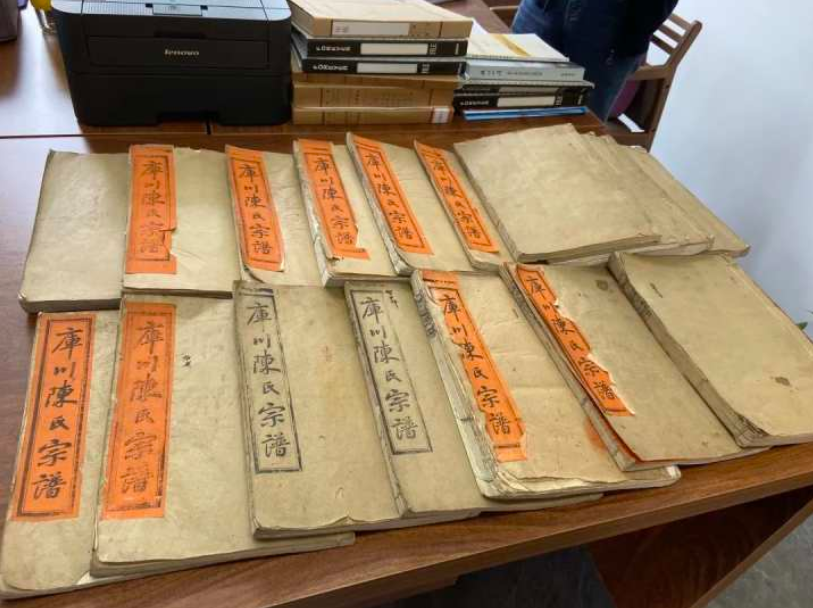 lenovo
FILE
FILE
庫川陳氏宗譜
庫川陳氏宗譜
庫川陳氏宗譜
庫川陳氏宗譜
庫川陳氏宗譜
庫川陳氏宗譜
庫川陳氏宗譜
庫川陳氏宗譜
庫川陳氏宗譜
庫川陳氏宗譜
庫川陳氏宗譜